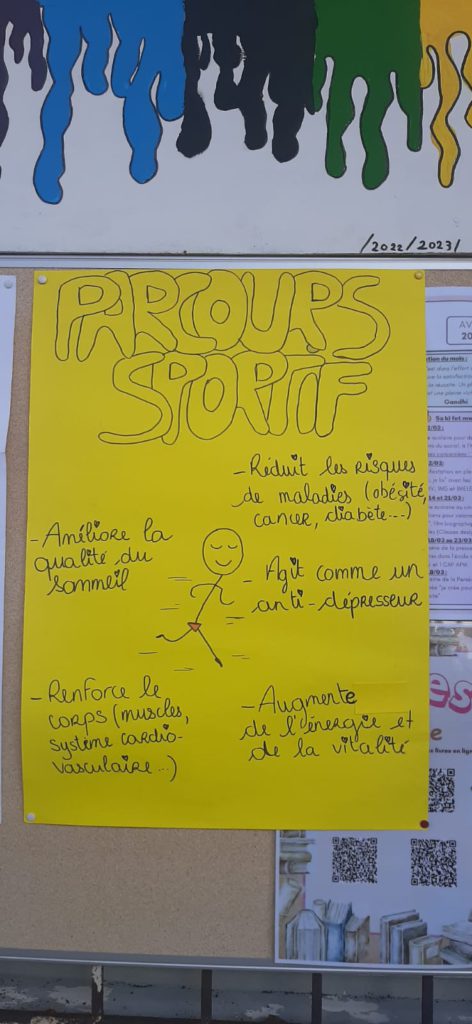 /2022/2023/
PARCOURS
SPORTIF
- Réduit les risques
de maladies (obésité,
cancer, diabète...)
- Améliore la
qualité du
sommeil
- Agit comme un
anti-dépresseur
- Renforce le
corps (muscles,
système cardio-
vasculaire...)
- Augmente
de l'énergie et
de la vitalité
AV
20
Gandhi